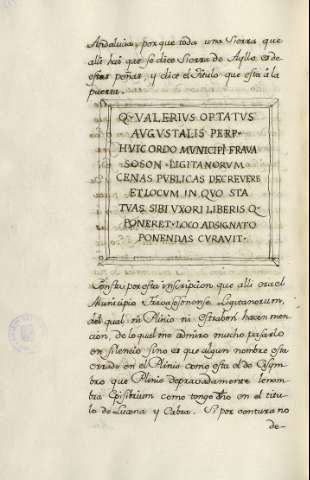 Andaluzia, porque toda una Sierra que
alli hai que se dice Sierra de Aqlla, es de
estas peñas, y dice el Titulo que esta à la
puerta.
Q. VALERIUS OPTATUS
AUGUSTALIS PERP.
HUIC ORDO MUNICIPI FRAUA
SOSON. LIGITANORUM
CENAS PUBLICAS DECREVERE
ET LOCUM IN QUO STA
TUAS SIBI UXORI LIBERIS Q.
PONERET. LOCO ADSIGNATO
PONENDAS CURAVIT.
Consta por esta inscripcion que alli era el
Municipio Fravasosonense Ligitanorum,
del qual ni Plinio ni Estrabon hacen men
cion, de lo qual me admiro mucho pasarlo
en silencio sino es que algun nombre esta
errado en el Plinio como esta el de Cisim-
bro que Plinio depravadamente le nom
bra Episibrium como tengo dho en el titu
lo de Lucena y Cabra. Si por ventura no
de-